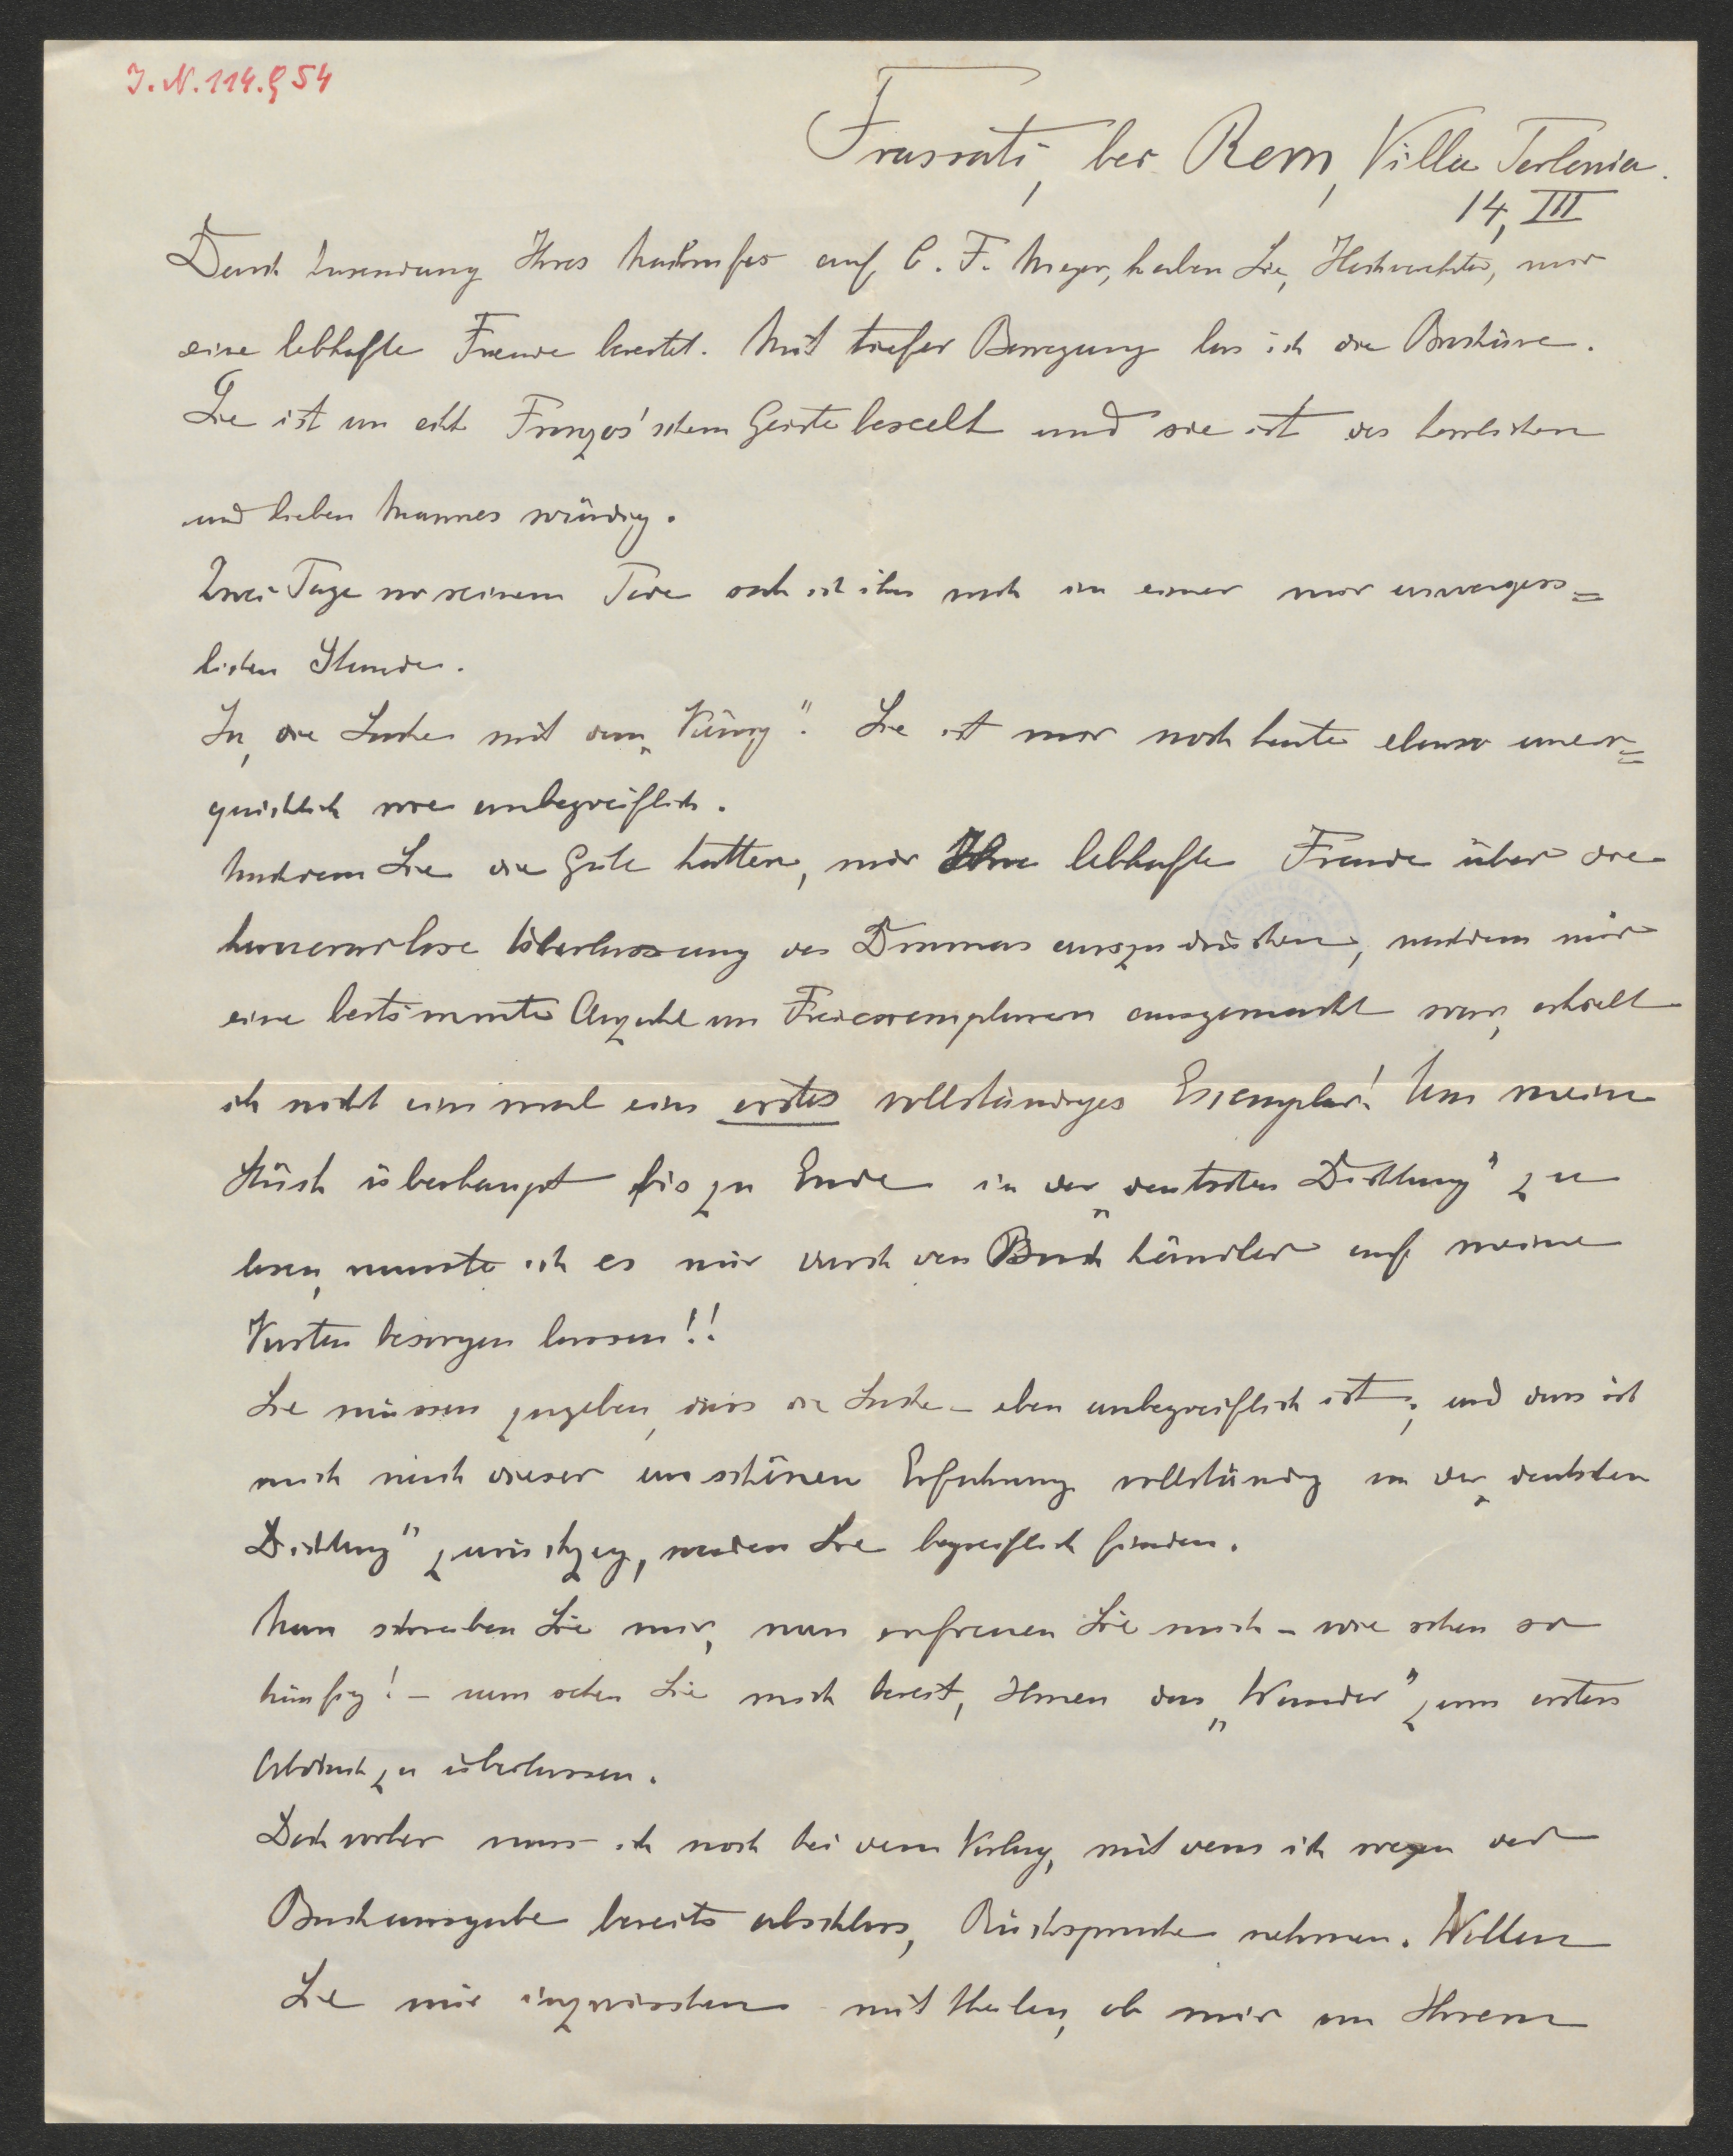 I. N. 114.854
Frascati, bei Rom, Villa Torlonia.
14, III
Durch Zusendung Ihres Nachrufes auf C. F. Meyer, haben Sie, Hochverehrter, mir
eine lebhafte Freude bereitet. Mit tiefer Bewegung las ich die Broshüre.
Sie ist von echt Franzos'schem Geiste beseelt und sie ist des herrlichen
und lieben Mannes würdig.
Zwei Tage vor seinem Tode sah ich ihn noch in einer mir unverges=
lichen Stunde.
Ja, die Sache mit dem „König". Sie ist mir noch heute ebenso uner=
quicklich wie unbegreiflich.
Nachdem Sie die Güte hatten, mir Ihre lebhafte Freude über die
honorarlose Überlassung des Dramas auszudrücken, nachdem mir
eine bestimmte Anzahl von Freiexemplaren ausgemacht war, erhielt
ich nicht einmal ein erstes vollständiges Exemplar! Um mein
Stück überhaupt bis zu Ende in der „deutschen Dichtung" zu
lesen, musste ich es mir durch den Buchhändler auf meine
Kosten besorgen lassen!!
Sie müssen zugeben, dass die Sache – eben unbegreiflich ist; und dass ich
mich nach dieser unschönen Erfahrung vollständig von der „deutschen
Dichtung" zurückzog, werden Sie begreiflich finden.
Nun schreiben Sie mir, nun erfreuen Sie mich – wie schon so
häufig! – nun sehen Sie mich bereit, Ihnen das „Wunder" zum ersten
Abdruck zu überlassen.
Doch vorher muss ich noch bei dem Verlag, mit dem ich wegen der
Buchausgabe bereits abschloss, Rücksprache nehmen. Wollen
Sie mir inzwischen mittheilen, ob mir von Ihrem